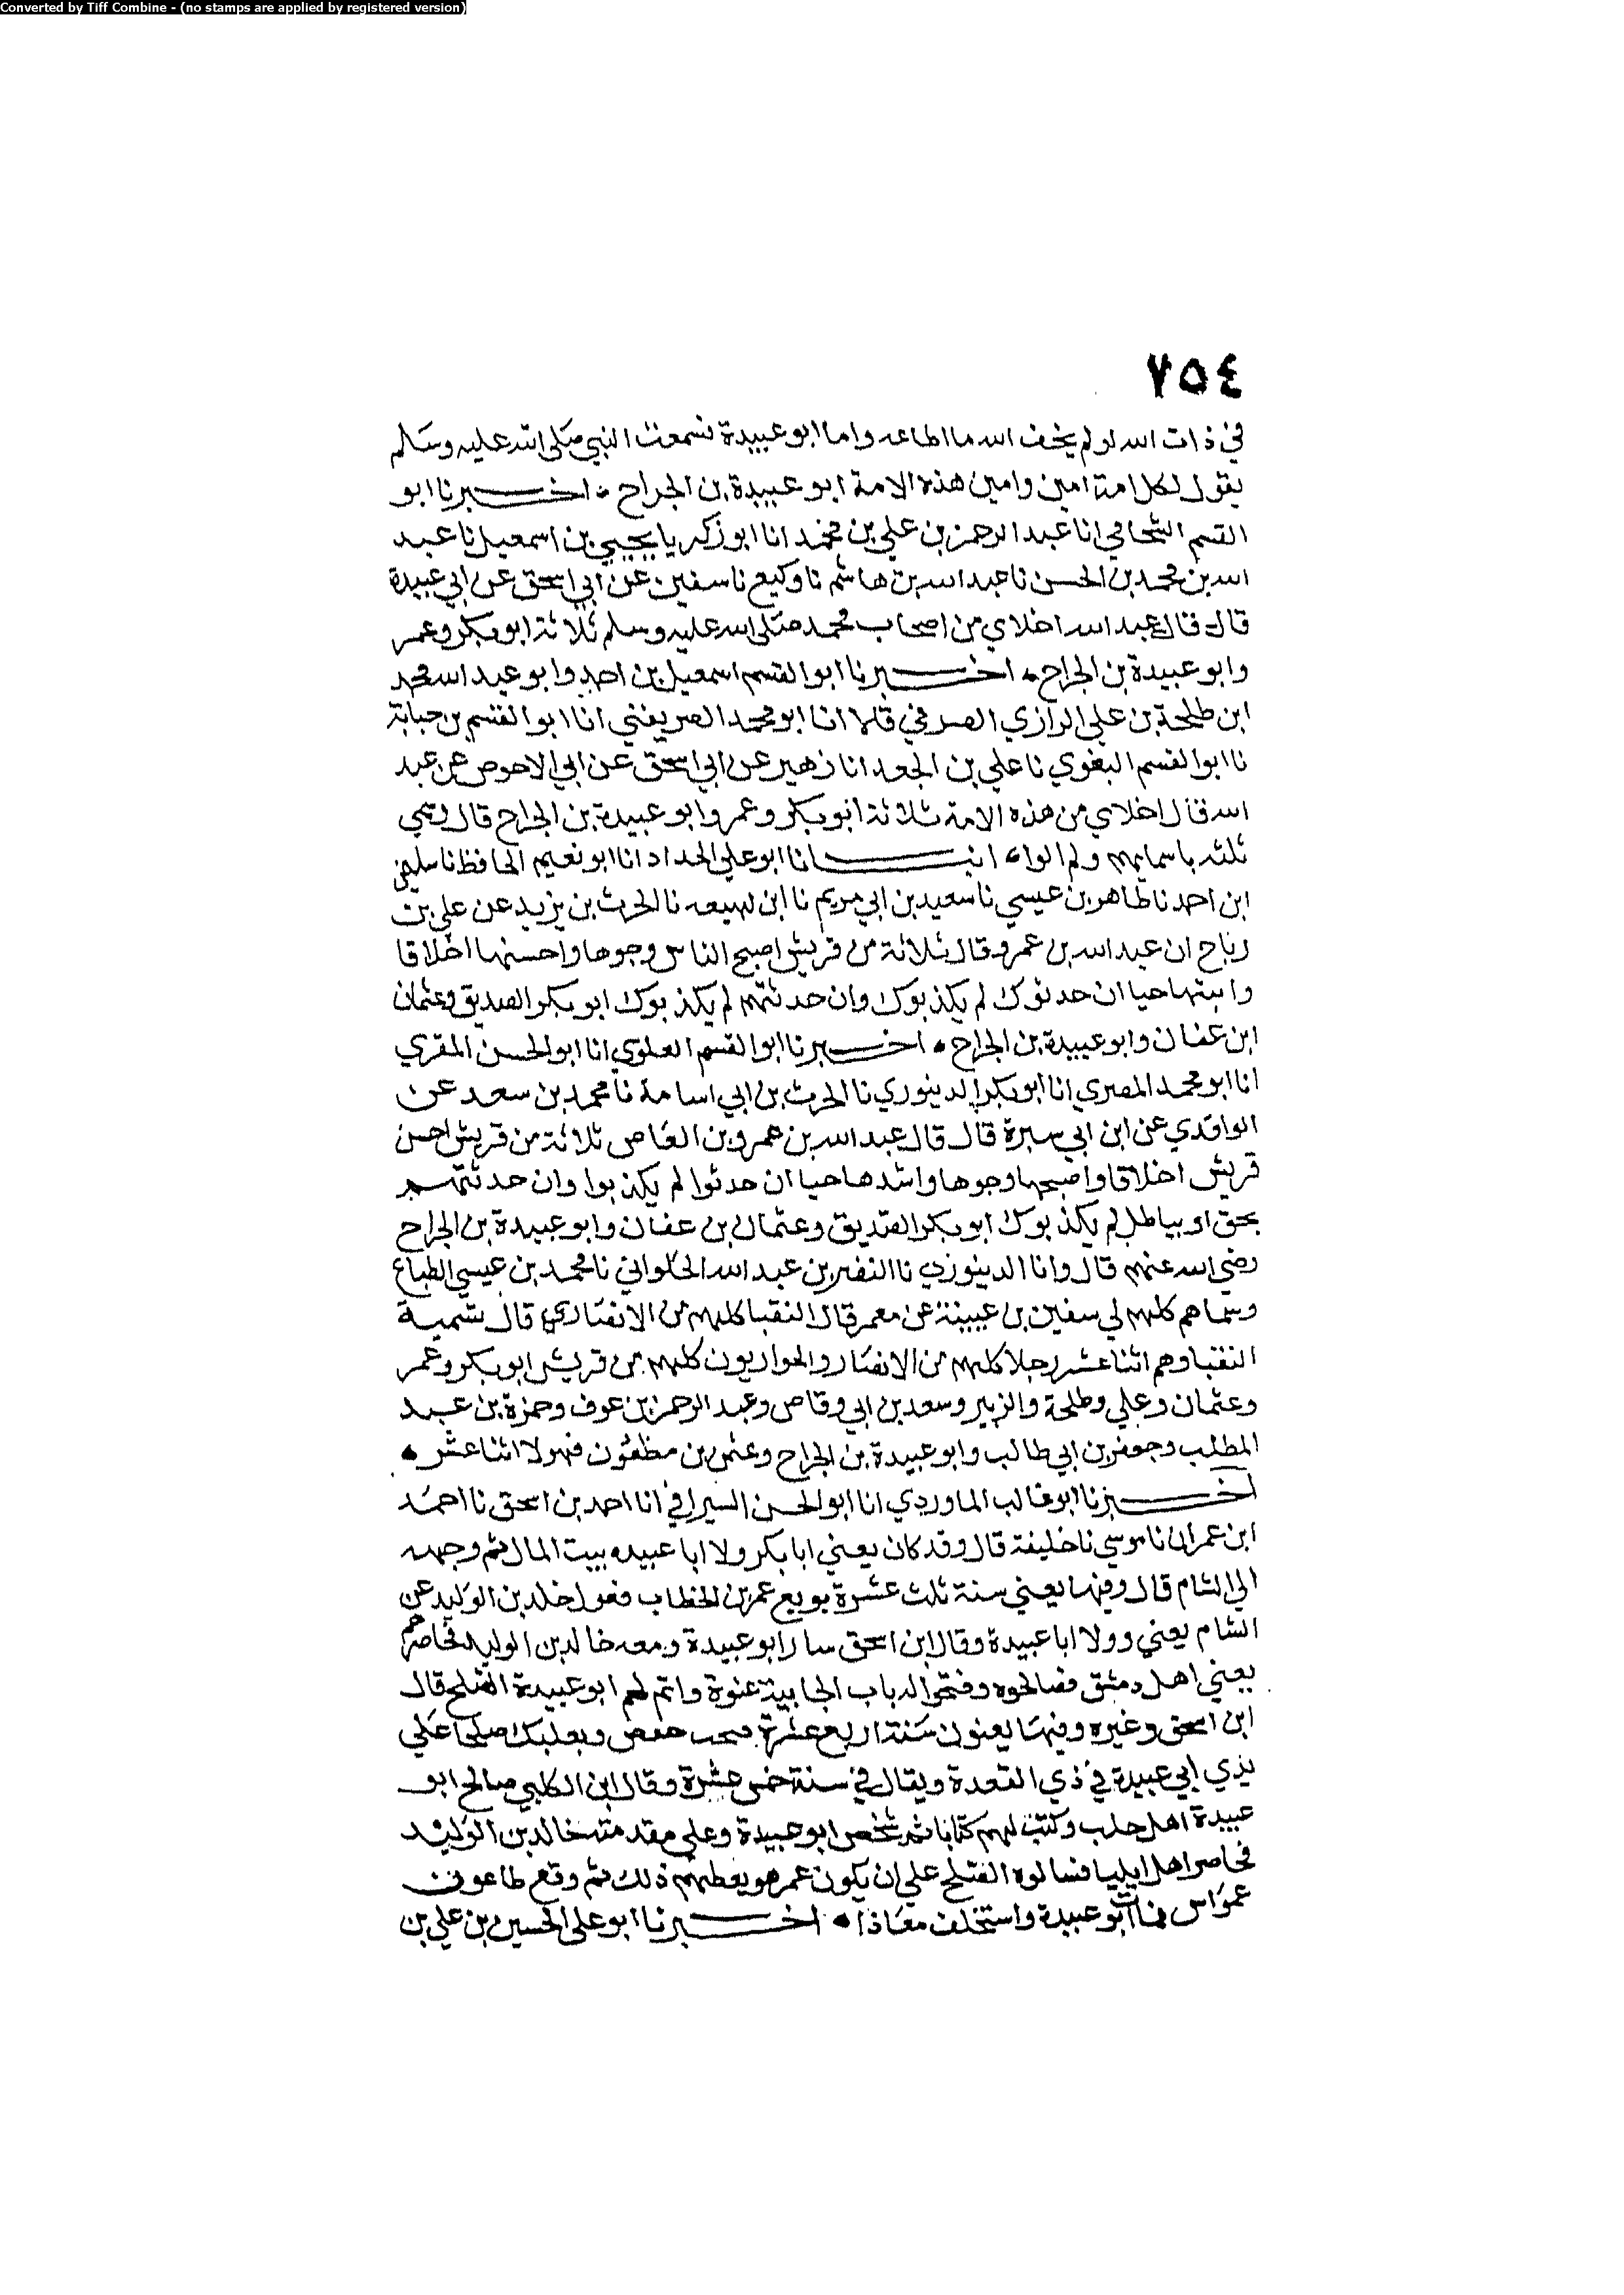 Converted by Tiff Combine - (no stamps are applied by registered version)
٧٥٤
في ذات الله لو لم يخف الله ما اطاعه واما ابو عبيدة فسمعت النبي صلى الله عليه وسلم
يقول لكل امة امين وامين هذه الامة ابو عبيدة بن الجراح • اخبرنا ابو
القسم الشحامي انا عبد الرحمن بن علي بن محمد انا ابو زكريا يحيي بن اسمعيل نا عبد
الله بن محمد بن الحسن نا عبد الله بن هاشم نا وكيع نا سفين عن ابي اسحق عن ابي عبيدة
قال قال عبد الله اخلاي من اصحاب محمد صلى الله عليه وسلم ثلاثة ابو بكر وعمر
وابو عبيدة بن الجراح • اخبرنا ابو القسم اسمعيل بن احمد وابو عبد الله محمد
ابن طلحة بن علي الرازي الصوفي قالا انا ابو محمد الصريفني انا ابو القسم بن حبابة
نا ابو القسم البغوي نا علي بن الجعد انا زهير عن ابي اسحق عن ابي الاحوص عن عبد
الله قال اخلاي من هذه الامة ثلاثة ابو بكر وعمر وابو عبيدة بن الجراح قال
ثلثه باسمايهم ولم الوا • انبانا ابو علي الحداد انا ابو نعيم الحافظ نا سليمن
ابن احمد نا طاهر بن عيسي نا سعيد بن ابي مريم نا ابن لهيعه نا الحرث بن يزيد عن علي بن
رباح ان عبد الله بن عمرو قال ثلاثة من قريش اصبح الناس وجوها واحسنها اخلاقا
واثبتها حيا ان حدثوك لم يكذبوك وان حدثتهم لم يكذبوك ابو بكر الصديق وعثمان
ابن عفان وابو عبيدة بن الجراح • اخبرنا ابو القسم العلوي انا ابو الحسن المقري
انا ابو محمد المصري انا ابو بكر الدينوري نا الحرث بن ابي اسامة نا محمد بن سعد عن
الواقدي عن ابن ابي سبرة قال قال عبد الله بن عمرو بن العاص ثلاثة من قريش احسن
قريش اخلاقا واصبحها وجوها واشدها حيا ان حدثوا لم يكذبوا وان حدثتهم
بحق او بباطل لم يكذبوك ابو بكر الصديق وعثمان بن عفان وابو عبيدة بن الجراح
رضي الله عنهم قال وانا الدينوري نا النضر بن عبد الله الحلواني نا محمد بن عيسي الطباع
وسماهم كلهم لي سفين بن عيينة عن معمر قال النقبا كلهم من الانصار قال تسمية
النقبا وهم اثنا عشر رجلا كلهم من الانصار والحواريون كلهم من قريش ابو بكر وعمر
وعثمان وعلي وطلحة والزبير وسعد بن ابي وقاص وعبد الرحمن بن عوف وحمزة بن عبد
المطلب وجعفر بن ابي طالب وابو عبيدة بن الجراح وعثمن بن مظعون فهولا اثنا عشر •
اخبرنا ابو غالب الماوردي انا ابو الحسن السيرافي انا احمد بن اسحق نا احمد
ابن عمران نا موسي نا خليفة قال وقد كان يعني ابا بكر ولا ابا عبيده بيت المال ثم وجهه
الي الشام قال وفيها يعني سنة ثلث عشرة بويع عمر بن الخطاب فعزل خلد بن الوليد عن
الشام يعني وولا ابا عبيدة وقال ابن اسحق سار ابو عبيدة ومعه خالد بن الوليد فحاصرهم
يعني اهل دمشق فصالحوه وفتحوا له باب الجابية عنوة واتم لهم ابو عبيدة الصلح قال
ابن اسحق وغيره وفيها يعنون سنة اربع عشرة فتحت حمص وبعلبك صلحا علي
يدي ابي عبيدة في ذي القعدة ويقال في سنة خمس عشرة وقال ابن الكلبي صالح ابو
عبيدة اهل حلب وكتب لهم كتابا ثم شخص ابو عبيدة وعلي مقدمته خالد بن الوليد
فحاصر اهل ايليا فسالوه الصلح علي ان يكون عمر هو يعطيهم ذلك ثم وقع طاعون
عمواس فمات ابو عبيدة واستخلف معاذا • اخبرنا ابو علي الحسين بن علي بن